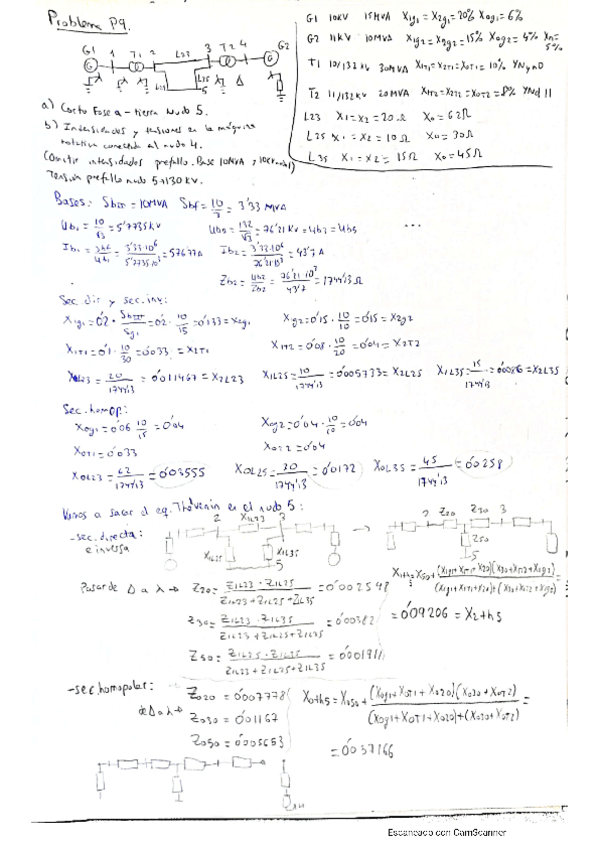 Problema P9.
G1 10KV 15MVA X1g1 = X2g1 = 20% X0g1 = 6%
G2 11KV 10MVA X1g2 = X2g2 = 15% X0g2 = 4% Xn = 5%
T1 10/132 kV 30MVA X1T1 = X2T1 = X0T1 = 10% YNyn0
T2 11/132 kV 20MVA X1T2 = X2T2 = X0T2 = 8% YNd11
L23 X1 = X2 = 20Ω X0 = 62Ω
L25 X1 = X2 = 10Ω X0 = 30Ω
L35 X1 = X2 = 15Ω X0 = 45Ω
G1 1 T1 2 L23 3 T2 4 G2
L25 L35 5
a) Corto Fase a - tierra Nudo 5.
b) Intensidades y tensiones en la máquina
rotativa conectada al nudo 4.
(Omitir intensidades prefallo. Base 10MVA y 10KV nudo 1)
Tensión prefallo nudo 5 → 130 KV.
Bases: SbTT = 10MVA Sbf = 10/3 = 3'33 MVA
Ub1 = 10/√3 = 5'7735kV Ub5 = 132/√3 = 76'21 KV = Ub3 = Ub5 ...
Ib1 = Sbf/Ub1 = 3'33·10⁶/5'7735·10³ = 576'77A Ib2 = 3'33·10⁶/76'21·10³ = 43'7 A
Zb2 = Ub2/Ib2 = 76'21·10³/43'7 = 1744'13 Ω
Sec. dir y sec. inv:
X1g1 = 0'2 · SbTT/Sg1 = 0'2 · 10/15 = 0'133 = X2g1 X1g2 = 0'15 · 10/10 = 0'15 = X2g2
X1T1 = 0'1 · 10/30 = 0'033 = X2T1 X1T2 = 0'08 · 10/20 = 0'04 = X2T2
X1L23 = 20/1744'13 = 0'011467 = X2L23 X1L25 = 10/1744'13 = 0'005733 = X2L25 X1L35 = 15/1744'13 = 0'0086 = X2L35
Sec. homop:
X0g1 = 0'06 10/15 = 0'04 X0g2 = 0'04 · 10/10 = 0'04
X0T1 = 0'033 X0T2 = 0'04
X0L23 = 62/1744'13 = 0'03555 X0L25 = 30/1744'13 = 0'0172 X0L35 = 45/1744'13 = 0'0258
Vamos a sacar el eq. Thévenin en el nudo 5:
- sec. directa:
e inversa
2 X1L23 3 X1L25 X1L35 5
2 Z20 Z30 3 Z50 5
Pasar de Δ a λ → Z20 = Z1L23 · Z1L25/Z1L23 + Z1L25 + Z1L35 = 0'002548
Z30 = Z1L23 · Z1L35/Z1L23 + Z1L25 + Z1L35 = 0'00382
Z50 = Z1L25 · Z1L35/Z1L23 + Z1L25 + Z1L35 = 0'001911
X1th5 = X50 + (X1g1 + X1T1 + X20)(X30 + X1T2 + X1g2)/(X1g1 + X1T1 + X20) + (X30 + X1T2 + X1g2) =
= 0'09206 = X2th5
- sec. homopolar:
de Δ a λ →
Z020 = 0'007778
Z030 = 0'01167
Z050 = 0'005653
X0th5 = X050 + (X0g1 + X0T1 + X020)(X030 + X0T2)/(X0g1 + X0T1 + X020) + (X030 + X0T2) =
= 0'037166
Escaneado con CamScanner